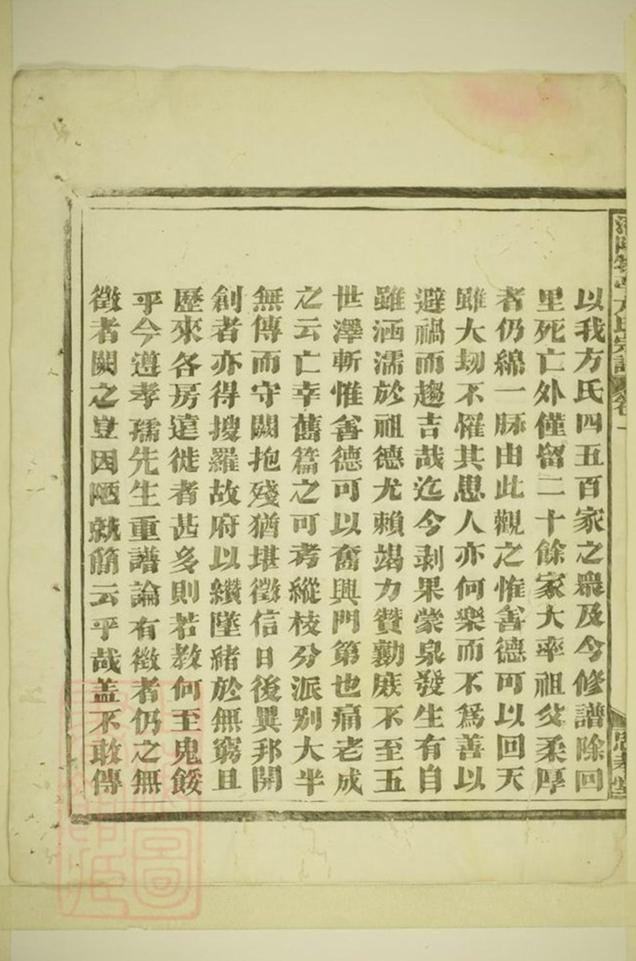 以我方氏四五百家之眾及今修譜除回
里死亡外僅留二十餘家大率祖父柔厚
者仍綿一脉由此觀之惟善德可以回天
雖大刼不懼其患人亦何樂而不爲善以
避禍而趨吉哉迄今剥果蒙泉發生有自
雖涵濡於祖德尤賴竭力贊勷庶不至五
世澤斬惟善德可以奮興門第也痛老成
之云亡幸舊篇之可考縱枝分派别大半
無傳而守闕抱殘猶堪徵信日後異邦開
創者亦得搜羅故府以纘墜緒於無窮且
歷來各房遠徙者甚多則若敖何至鬼餒
乎今遵孝孺先生重譜論有徵者仍之無
徵者闕之豈因陋就簡云乎哉盖不敢傳
方氏宗譜 卷一